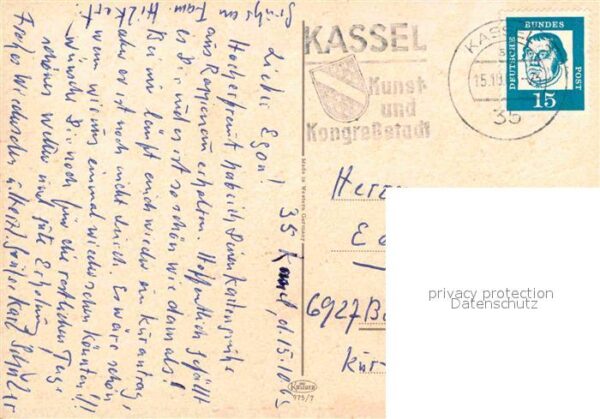 35 Kassel, d. 15.10.65
Lieber Egon!
Hocherfreut habe ich Deinen Kartengruß
aus Rappenau erhalten. Hoffentlich gefällt
es Dir und es ist so schön wie damals!
Bei mir läuft auch wieder ein Kurantrag,
aber er ist noch nicht durch. Es wäre schön
wenn wir uns einmal wiedersehen könnten!!!
Wünsche Dir noch für die restlichen Tage
schönes Wetter und gute Erholung
Frohes Wiedersehen u. herzl. Grüße Karl
Grüße an
Fam.
KASSEL
Kunst-
und
Kongreßstadt
KASSEL
15.10.
35
DEUTSCHE BUNDES POST
15
Made in Western Germany
Herrn
E
6927 B
Kur-
privacy protection
Datenschutz
Krüger
975/7